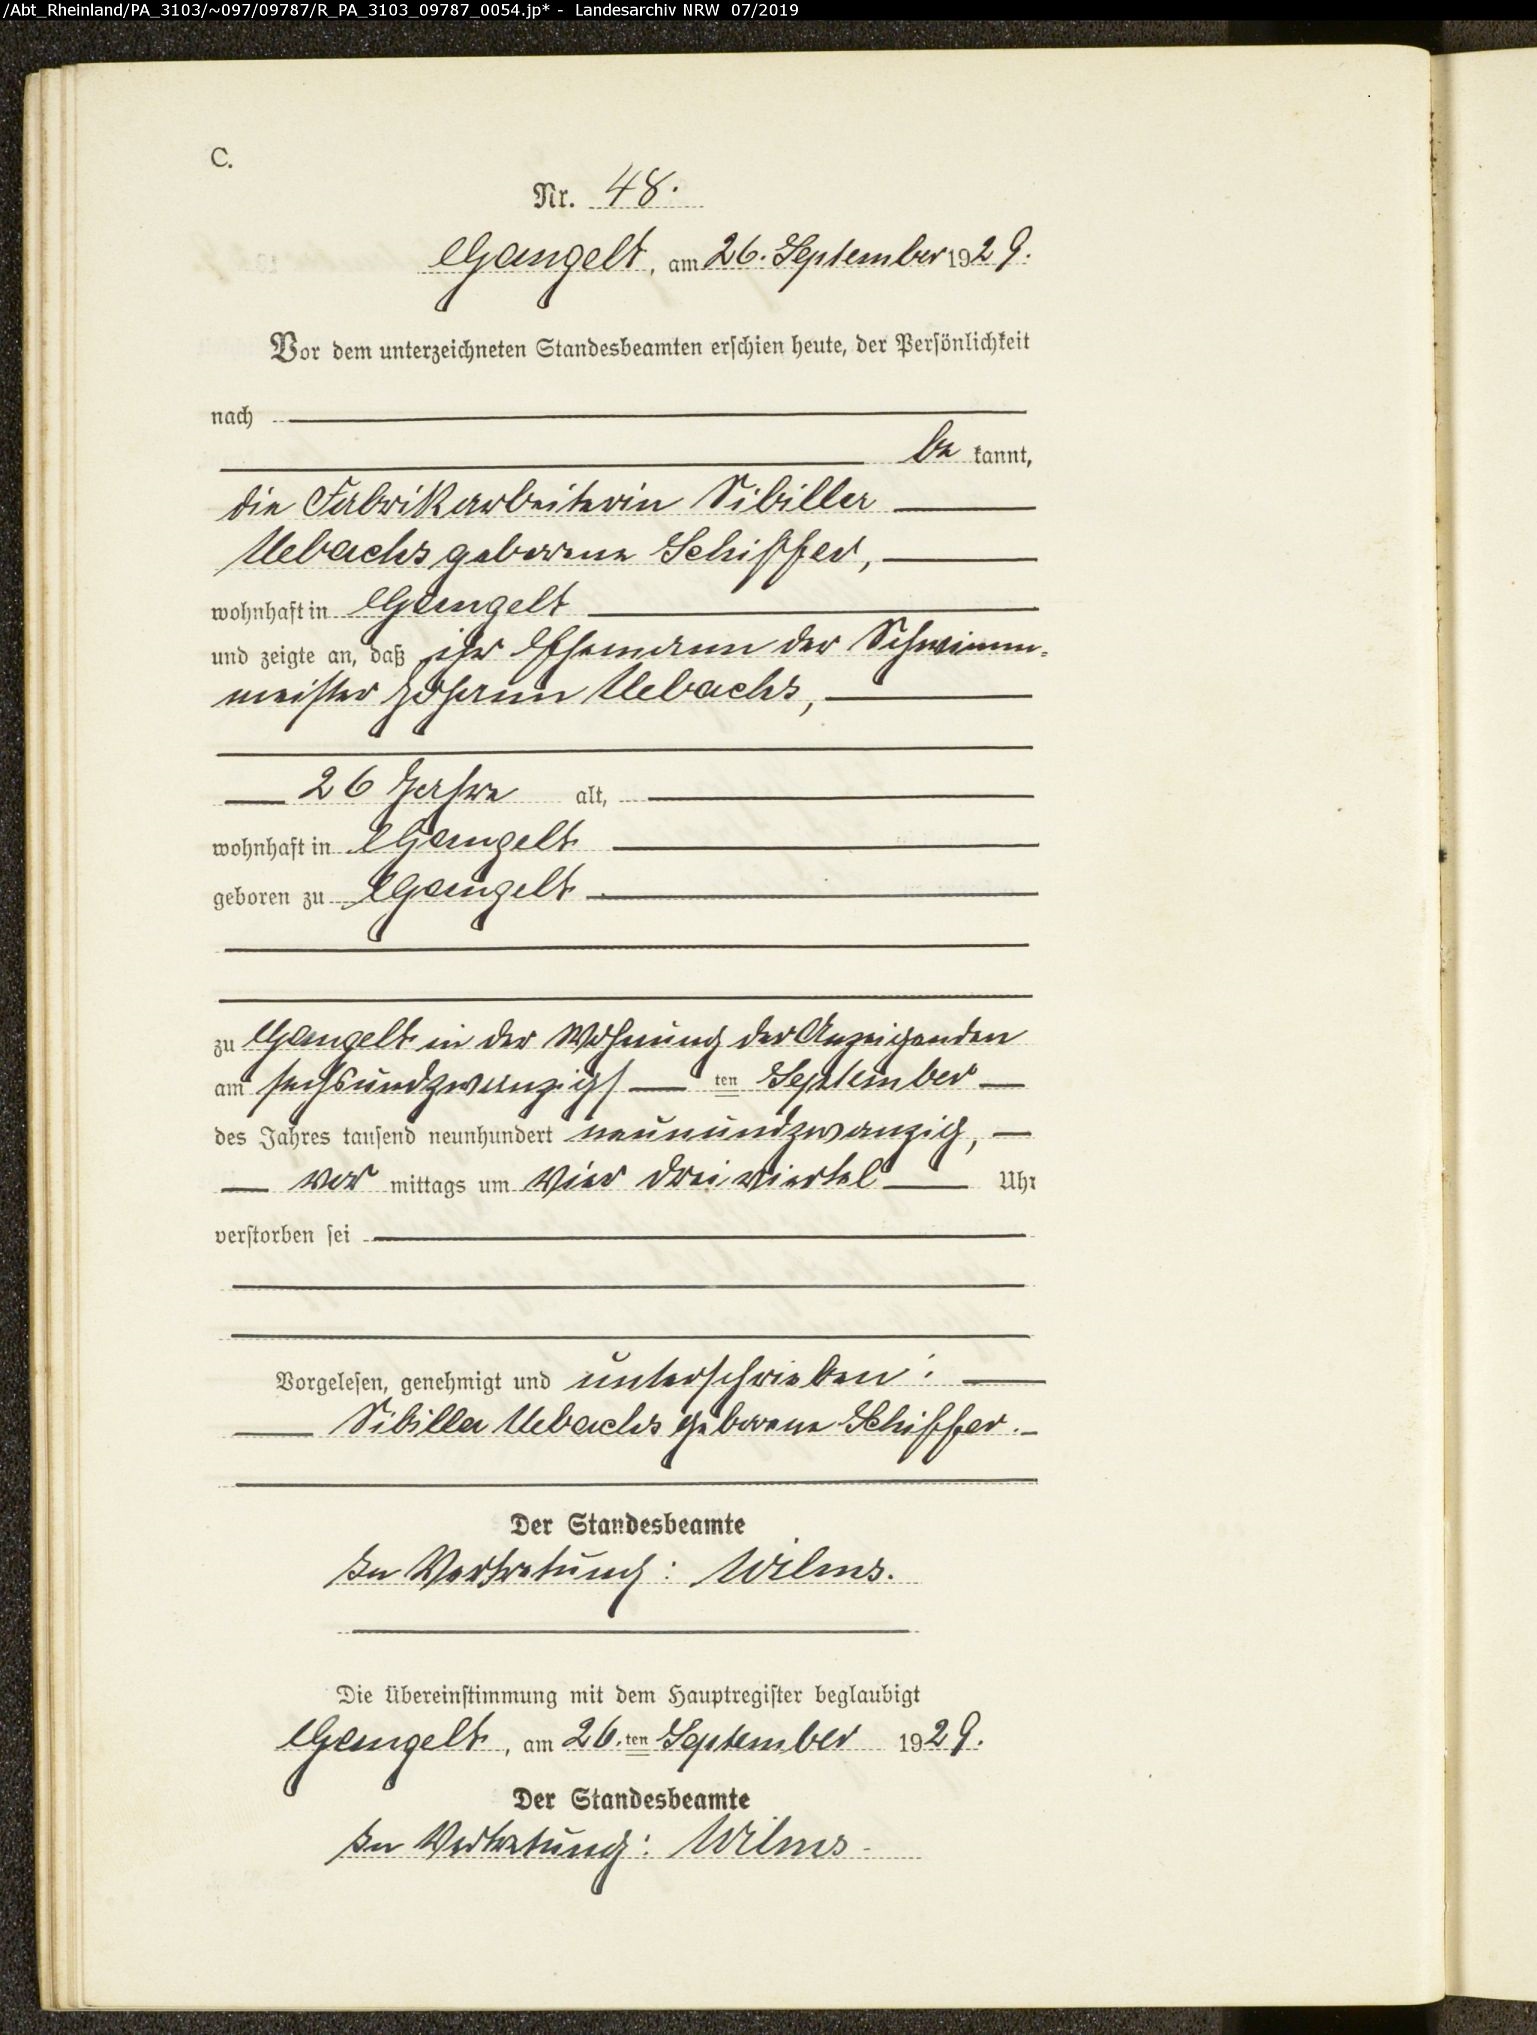 /Abt_Rheinland/PA_3103/~097/09787/R_PA_3103_09787_0054.jp* - Landesarchiv NRW 07/2019
C.
Nr. 48.
Gangelt, am 26. September 1929.
Vor dem unterzeichneten Standesbeamten erschien heute, der Persönlichkeit
nach
be kannt,
die Fabrikarbeiterin Sibilla
Uebachs geborene Schiffer,
wohnhaft in Gangelt
und zeigte an, daß ihr Ehemann der Schwimm-
meister Johann Uebachs,
26 Jahre alt,
wohnhaft in Gangelt
geboren zu Gangelt
zu Gangelt in der Wohnung der Anzeigenden
am sechsundzwanzigs ten September
des Jahres tausend neunhundert neunundzwanzig,
vor mittags um vier dreiviertel Uhr
verstorben sei
Vorgelesen, genehmigt und unterschrieben:
Sibilla Uebachs geborene Schiffer.
Der Standesbeamte
In Vertretung: Wilms.
Die Übereinstimmung mit dem Hauptregister beglaubigt
Gangelt, am 26. ten September 1929.
Der Standesbeamte
In Vertretung: Wilms